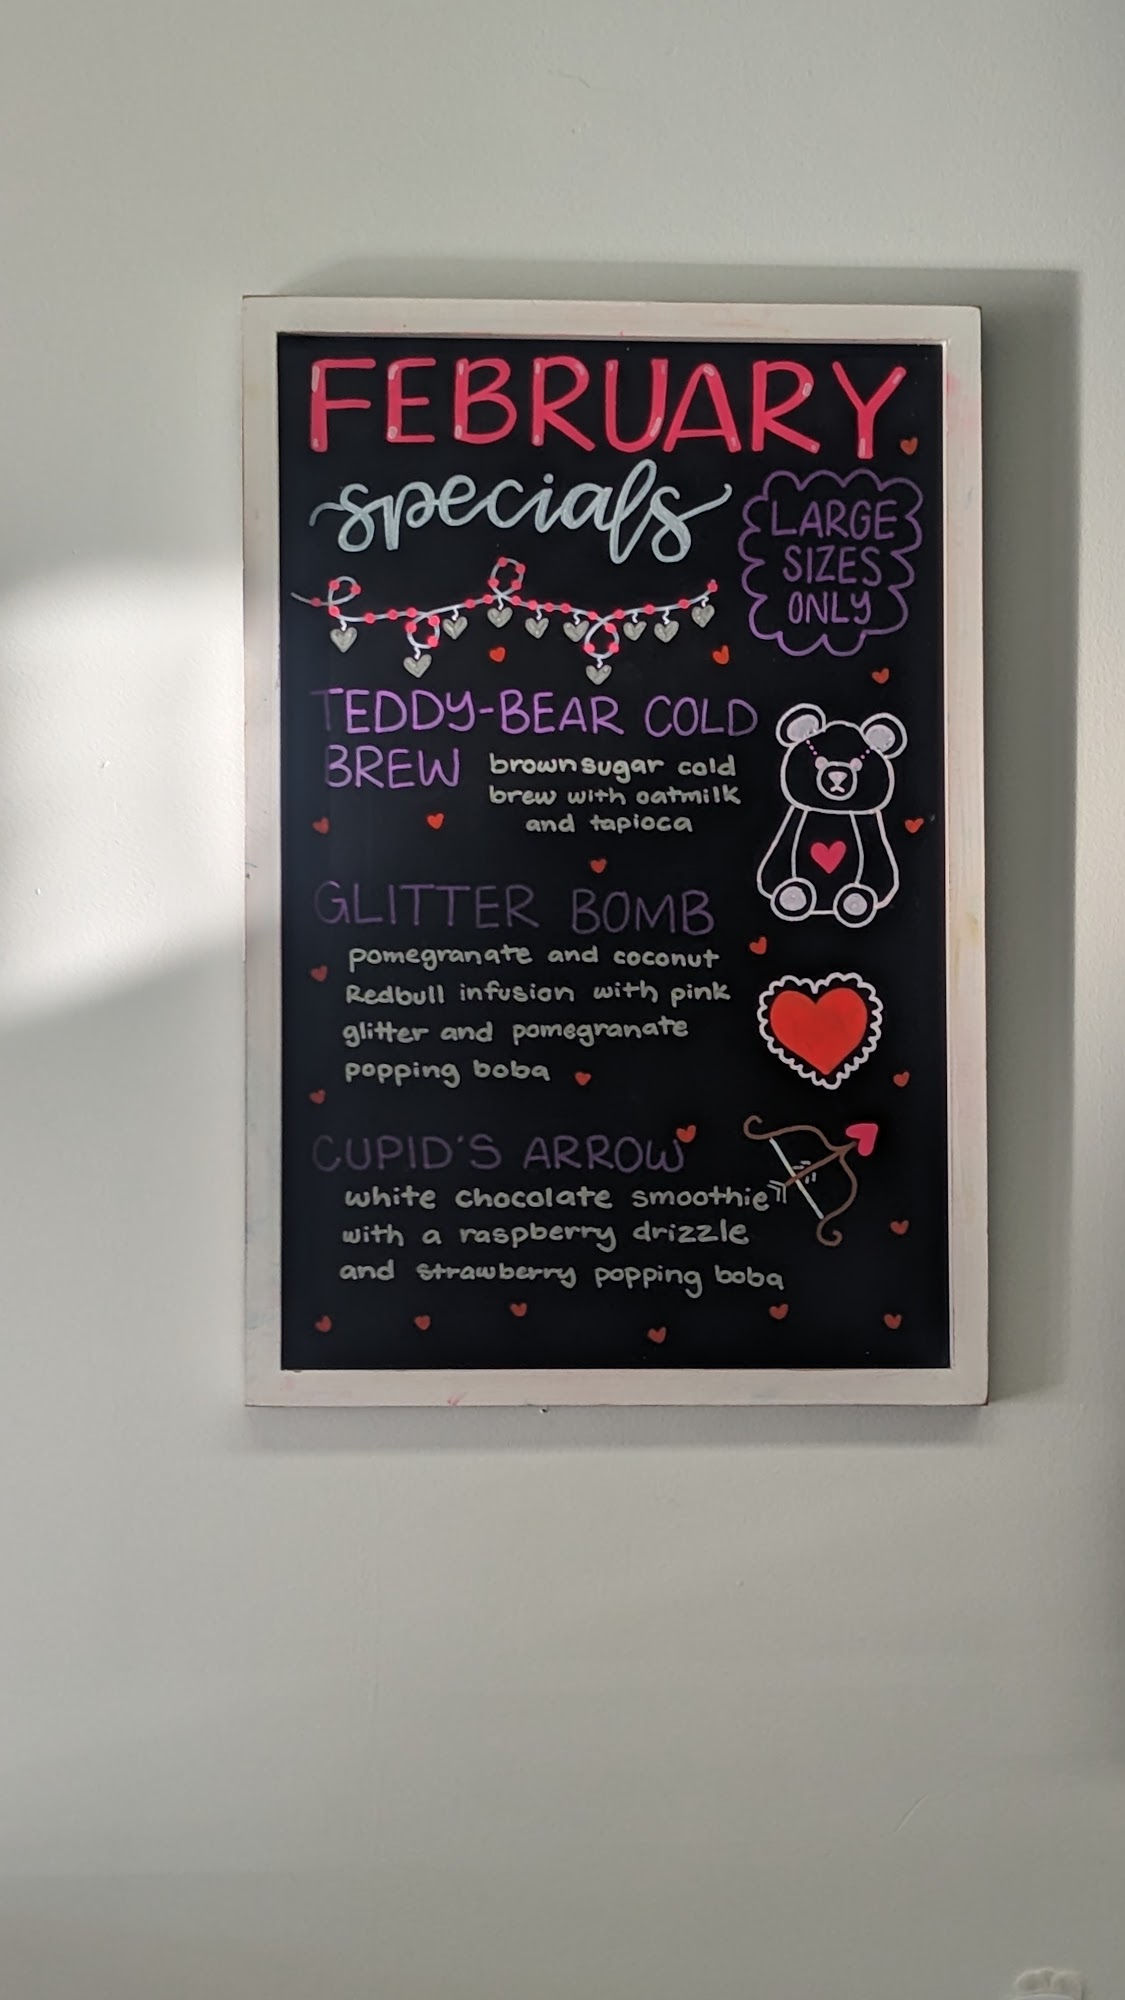 FEBRUARY
specials
LARGE
SIZES
ONLY
TEDDY-BEAR COLD
BREW
brown sugar cold
brew with oatmilk
and tapioca
GLITTER BOMB
pomegranate and coconut
Redbull infusion with pink
glitter and pomegranate
popping boba
CUPID'S ARROW
white chocolate smoothie
with a raspberry drizzle
and strawberry popping boba